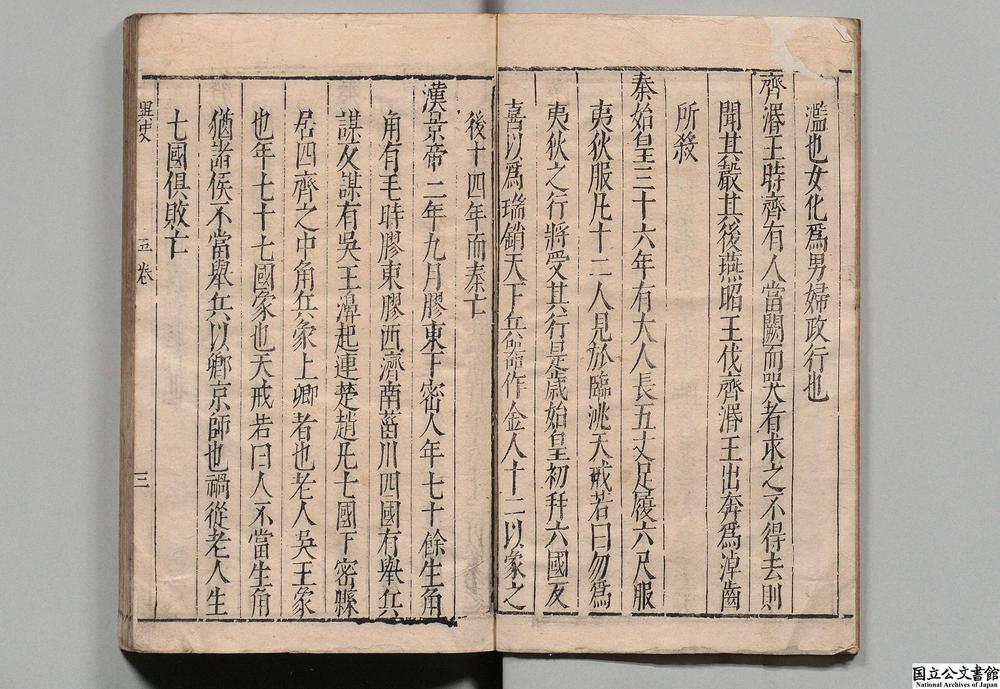 濫也女化爲男婦政行也
齊湣王時齊有人當闕而哭者求之不得去則
聞其聲其後燕昭王伐齊湣王出奔爲淖齒
所殺
秦始皇三十六年有大人長五丈足履六尺服
夷狄服凡十二人見於臨洮天戒若曰勿爲
夷狄之行將受其行是歲始皇初幷六國反
喜以爲瑞銷天下兵器作金人十二以象之
後十四年而秦亡
漢景帝二年九月膠東下密人年七十餘生角
角有毛時膠東膠西濟南菑川四國有舉兵
謀反謀有吳王濞起連楚趙凡七國下密縣
居四齊之中角兵象上卿者也老人吳王象
也年七十七國象也天戒若曰人不當生角
猶諸侯不當舉兵以鄉京師也禍從老人生
七國俱敗亡
異史 五卷 三
国立公文書館
National Archives of Japan